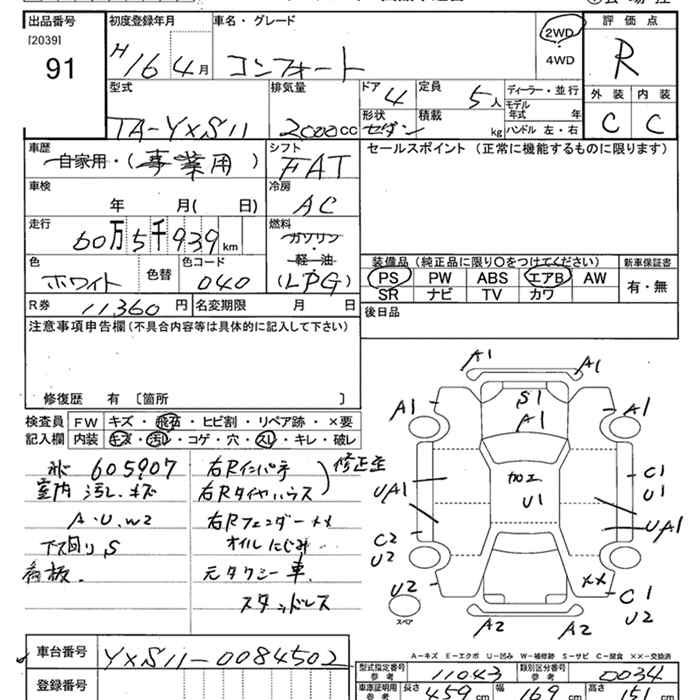 出品番号 初度登録年月 車名・グレード 2WD 評価点
[2039] ・
91 H16 4月 コンフォート 4WD R
型式 排気量 ドア 定員 ディーラー・並行 外装 内装
4 5人 モデル年式 年
TA-YXS11 2000cc 形状 積載 C C
セダン kg ハンドル 左・右
車歴 シフト セールスポイント (正常に機能するものに限ります)
自家用・(事業用) FAT
車検 冷房
年 月( 日) AC
走行 燃料
60万5千939km ガソリン
・
軽油 装備品(純正品に限り○をつけてください) 新車保証書
色 色替 色カラーコード (LPG) PS PW ABS エアB AW 有・無
ホワイト 040 SR ナビ TV カワ
R券 11,360円 名変期限 月 日 後日品
注意事項申告欄(不具合内容等は具体的に記入して下さい)
修復歴 有 〔箇所 〕
検査員 FW キズ・飛石・ヒビ割・リペア跡・×要
記入欄 内装 キズ・汚レ・コゲ・穴・スレ・キレ・破レ
605907 右Rインパネ 修正歪
室内 汚レ、キズ 右Rタイヤハウス
A・U、W2 右Rフェンダー
下回り S オイルにじみ
看板、 元タクシー車
スタッドレス
車台番号 YXS11-0084502
登録番号
A1 A1
S1
A1 A1 A1
加工
U1
UA1 C1
U1
UA1
C2
U2
U2 ×× C1
U2
スペア A2 A2
A-キズ E-エクボ U-凹み W-補修跡 S-サビ C-腐食 ××-交換済
型式指定番号 参考 11043 類別区分番号 参考 0034
車庫証明用 参考 長さ 459cm 幅 169cm 高さ 151cm